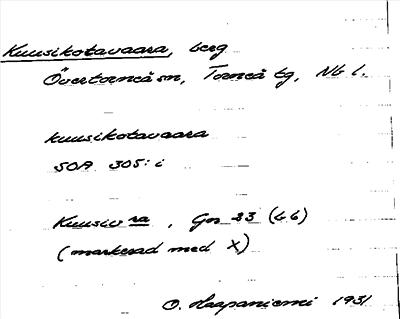 Kuusikotavaara, berg
Övertorneå sn, Torneå tg, Nb l.
kuusikotavaara
SOA 305: i
Kuusiv ra, Gs 23 (b6)
(markerad med X)
O. Haapaniemi 1931